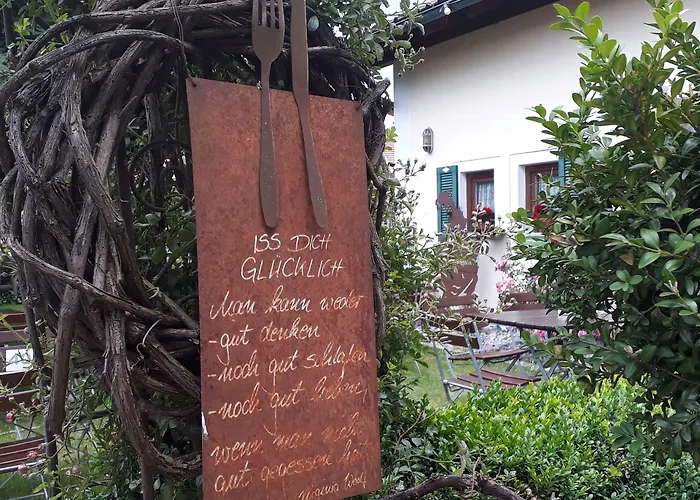 ISS DICH
GLÜCKLICH
Man kann weder
- gut denken
- noch gut schlafen
- noch gut lieben,
wenn man nicht
gut gegessen hat.
Virginia Woolf